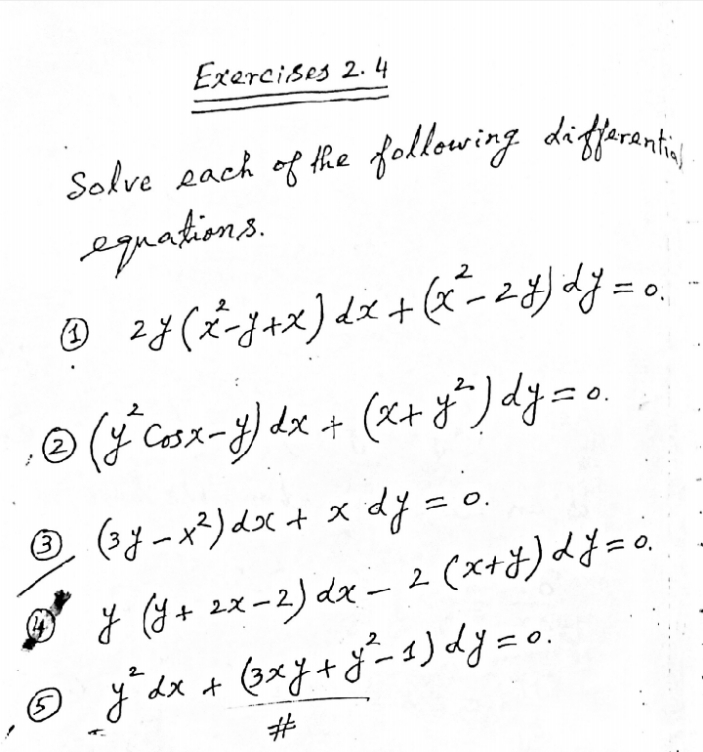 Exercises 2.4
Solve each of the following differential
equations.
① 2y (x²-y+x) dx + (x²-2y) dy = 0.
② (y² Cosx-y) dx + (x+y²) dy = 0.
③ (3y-x²) dx + x dy = 0.
④ y (y+2x-2) dx - 2 (x+y) dy = 0.
⑤ y² dx + (3xy+y²-1) dy = 0.
#